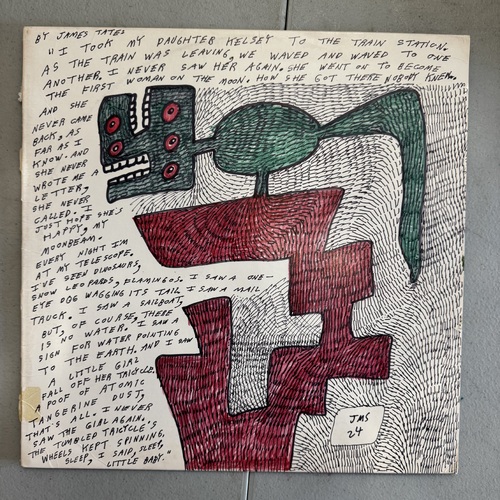 BY JAMES TATE
"I TOOK MY DAUGHTER KELSEY TO THE TRAIN STATION.
AS THE TRAIN WAS LEAVING, WE WAVED AND WAVED TO ONE
ANOTHER. I NEVER SAW HER AGAIN. SHE WENT ON TO BECOME
THE FIRST WOMAN ON THE MOON. HOW SHE GOT THERE NOBODY KNEW.
AND SHE
NEVER CAME
BACK, AS
FAR AS I
KNOW. AND
SHE NEVER
WROTE ME A
LETTER,
SHE NEVER
CALLED. I
JUST HOPE SHE'S
HAPPY, MY
MOONBEAM.
EVERY NIGHT I'M
AT MY TELESCOPE.
I'VE SEEN DINOSAURS,
SNOW LEOPARDS, FLAMINGOS. I SAW A ONE-
EYE DOG WAGGING ITS TAIL. I SAW A MAIL
TRUCK. I SAW A SAILBOAT,
BUT, OF COURSE, THERE
IS NO WATER. I SAW A
SIGN FOR WATER POINTING
TO THE EARTH. AND I SAW
A LITTLE GIRL
FALL OFF HER TRICYCLE.
A POOF OF ATOMIC
TANGERINE DUST,
THAT'S ALL. I NEVER
SAW THE GIRL AGAIN.
THE TUMBLED TRICYCLE'S
WHEELS KEPT SPINNING.
SLEEP, I SAID, SLEEP,
LITTLE BABY."
JMS
24